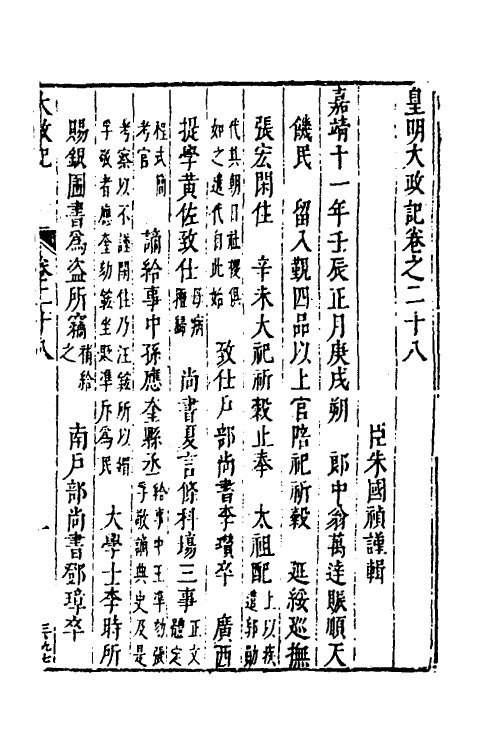 皇明大政記卷之二十八
臣朱國禎謹輯
嘉靖十一年壬辰正月庚戌朔　郎中翁萬達賑順天
饑民　留入覲四品以上官陪祀祈穀　延綏巡撫
張宏閑住　辛未大祀祈穀止奉　太祖配上以疾遣郭勛
代其朝日社稷俱如之遣代自此始　致仕戶部尚書李瓚卒　廣西
提學黃佐致仕母病擅歸　尚書夏言條科場三事正文體定
程式簡考官　謫給事中孫應奎縣丞給事中王準劾張孚敬謫典史及是
考察以不謹閑住乃汪鋐所以揖孚敬者應奎劾鋐坐貶準斥為民　大學士李時所
賜銀圖書為盜所竊補給之　南戶部尚書鄧璋卒
大政記　卷二十八　一